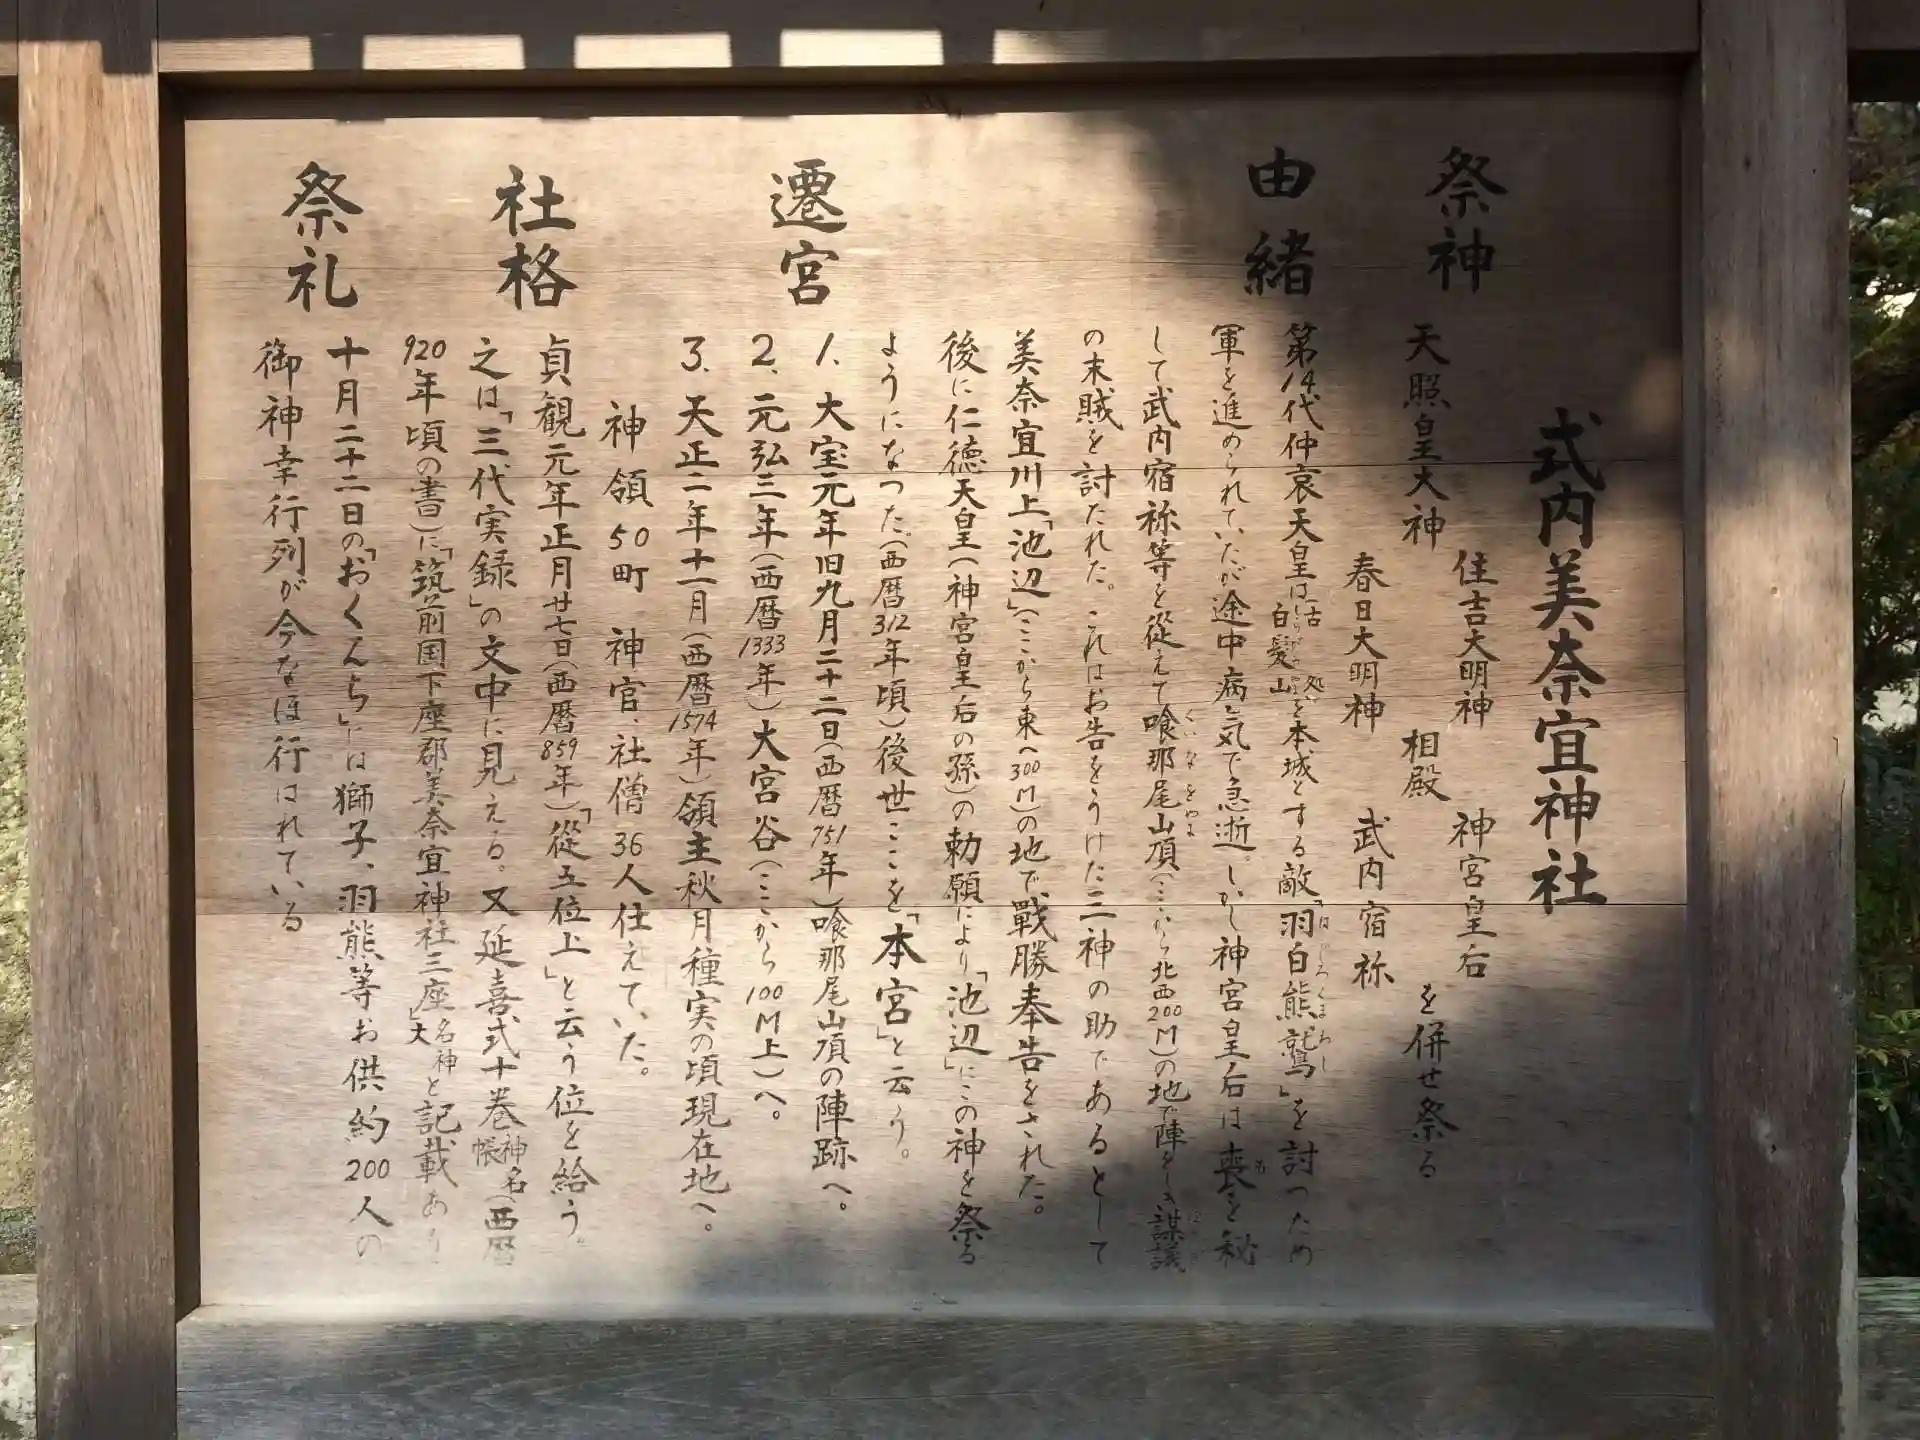 式内美奈宜神社
祭神
天照皇大神
住吉大明神
春日大明神
相殿
神宮皇后
武内宿祢
を併せ祭る
由緒
第14代仲哀天皇は古処白髪山を本城とする敵「羽白熊鷲」を討つため
軍を進められていたが途中病気で急逝。しかし神宮皇后は喪を秘
して武内宿祢等を従えて喰那尾山頂(ここから北西200M)の地で陣をしき謀議
の末賊を討たれた。これはお告をうけた三神の助であるとして
美奈宜川上「池辺」(ここから東へ300M)の地で戰勝奉告をされた。
後に仁徳天皇(神宮皇后の孫)の勅願により「池辺」にこの神を祭る
ようになった。(西暦312年頃)後世ここを「本宮」と云う。
遷宮
1、大宝元年旧九月二十二日(西暦751年)喰那尾山頂の陣跡へ。
2、元弘三年(西暦1333年)大宮谷(ここから100M上)へ。
3、天正二年十一月(西暦1574年)領主秋月種実の頃現在地へ。
神領50町 神官、社僧36人仕えていた。
社格
貞観元年正月廿七日(西暦859年)「從五位上」と云う位を給う。
之は「三代実録」の文中に見える。又延喜式十巻神名帳(西暦
920年頃の書)に「筑前国下座郡美奈宜神社三座名神大」と記載あり
祭礼
十月二十二日の「おくんち」には獅子、羽熊等お供約200人の
御神幸行列が今なほ行はれている